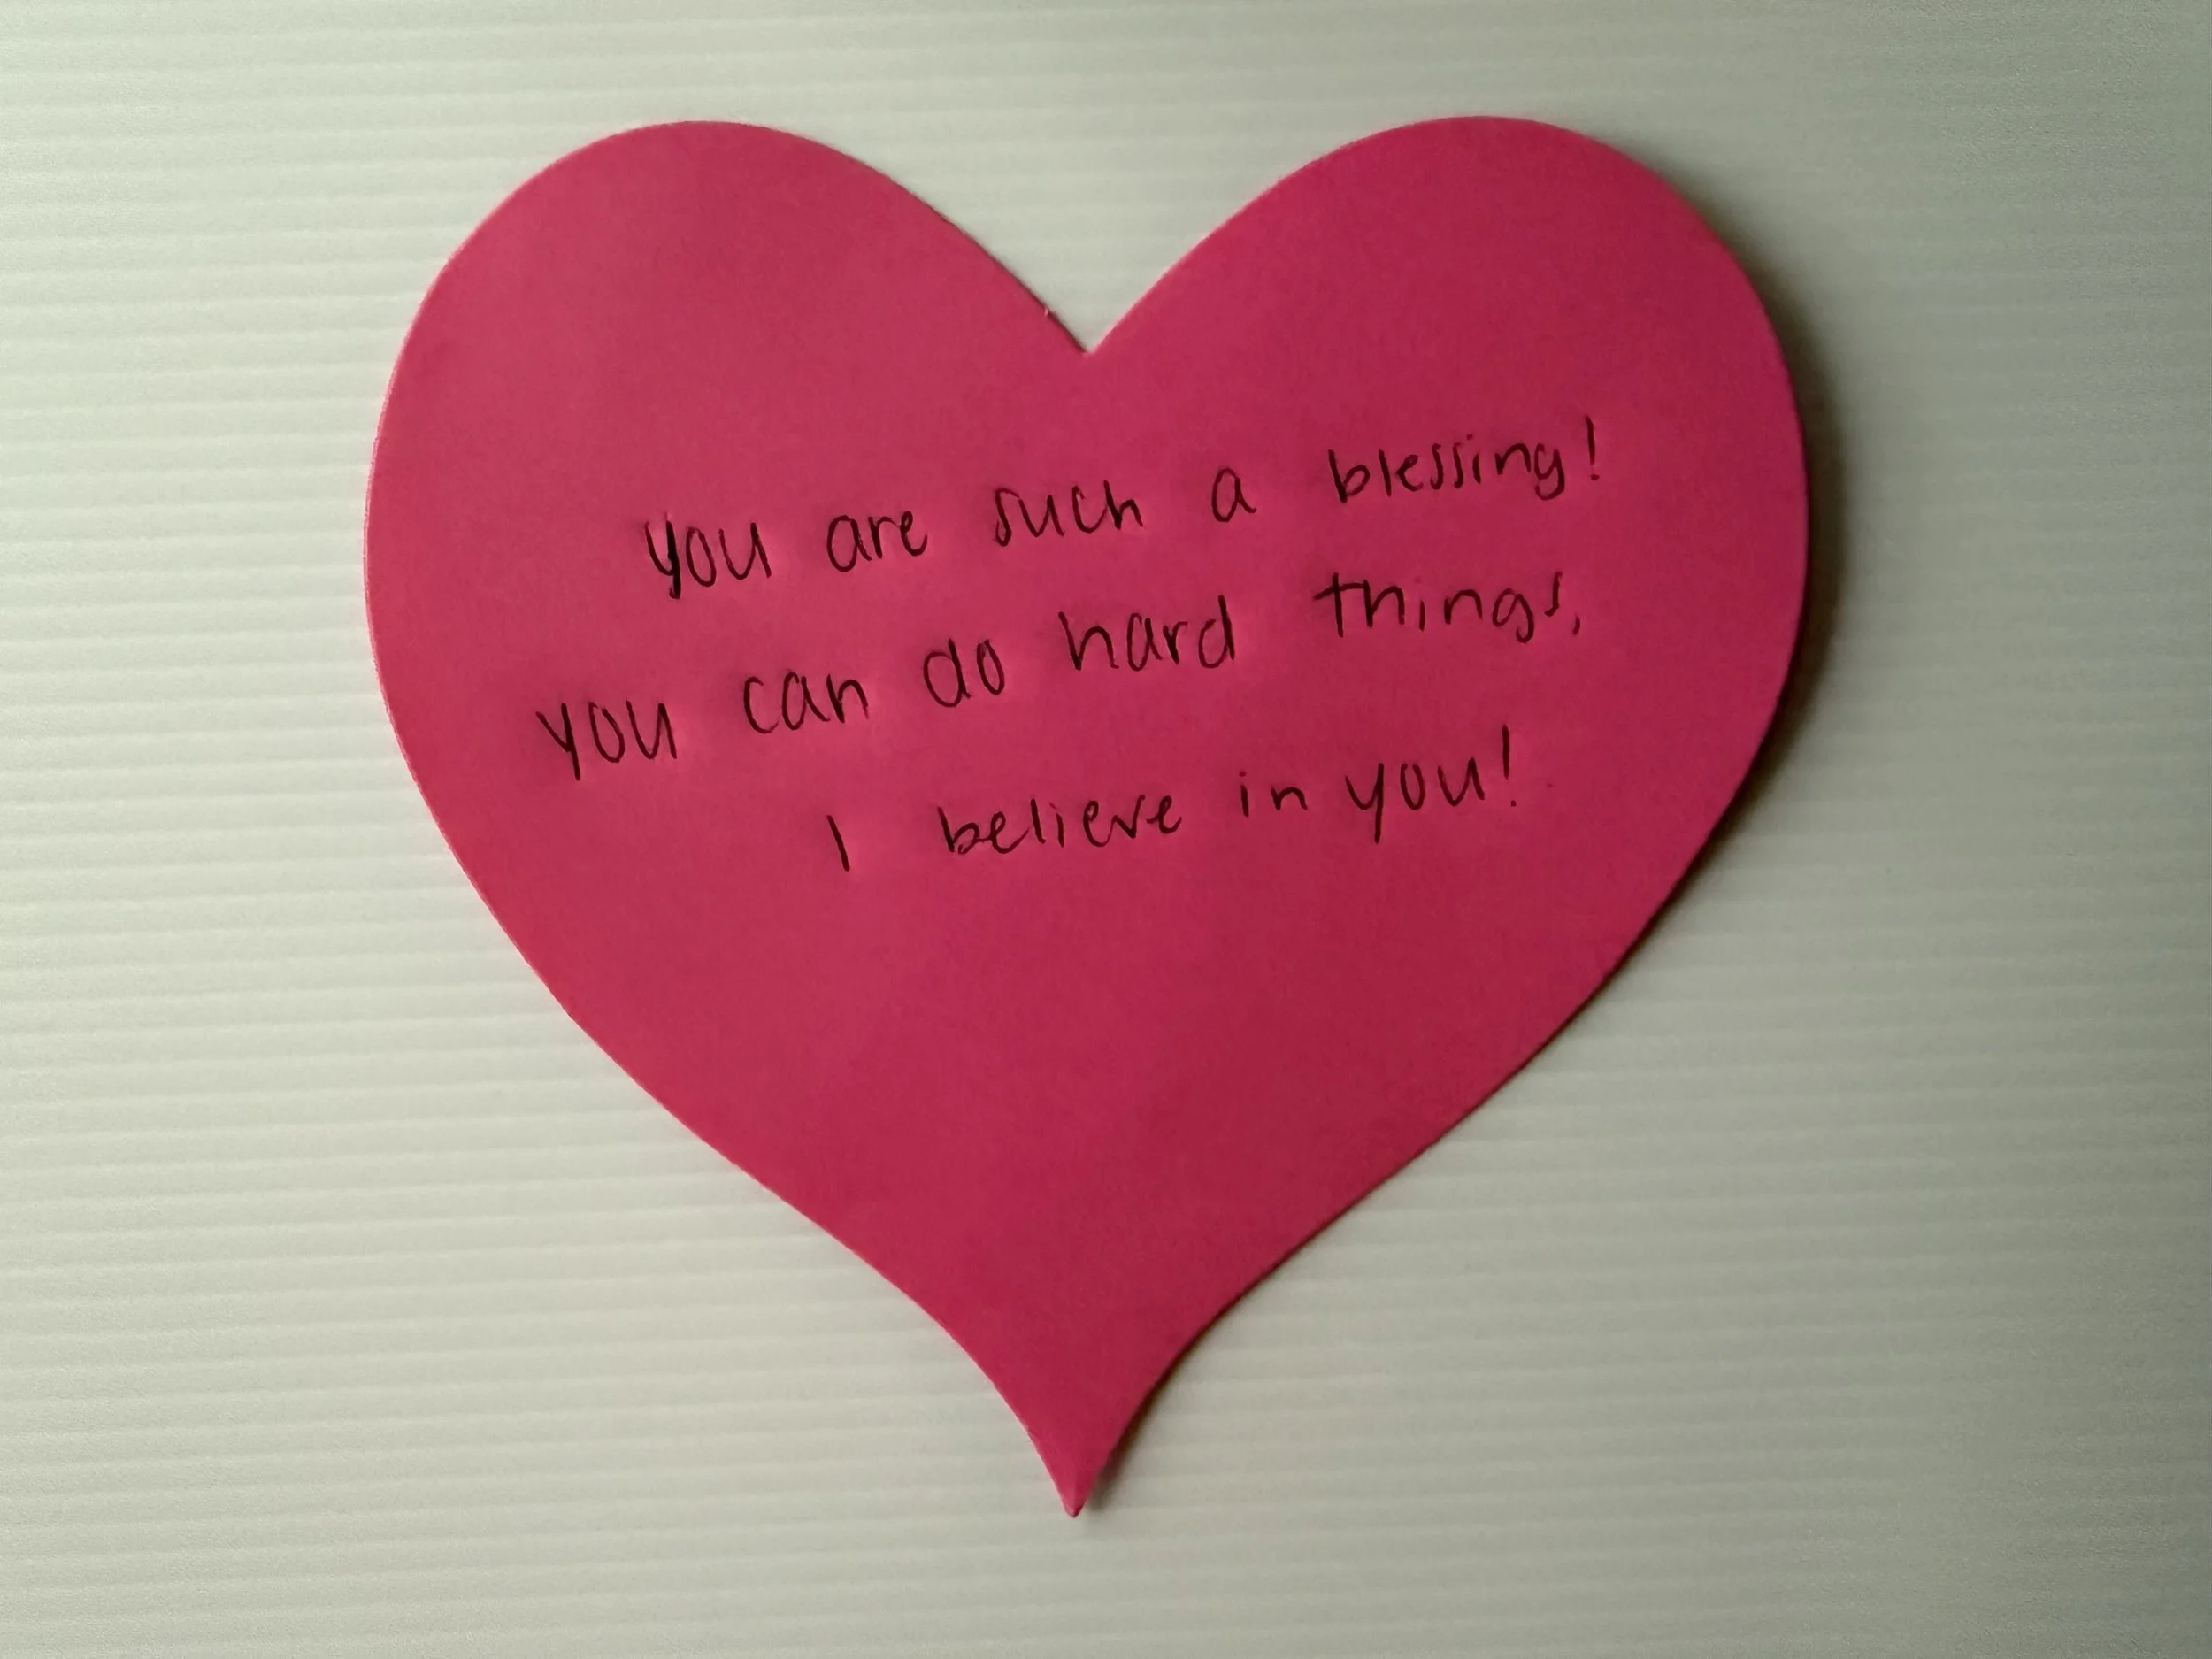 you are such a blessing!
you can do hard things,
I believe in you!